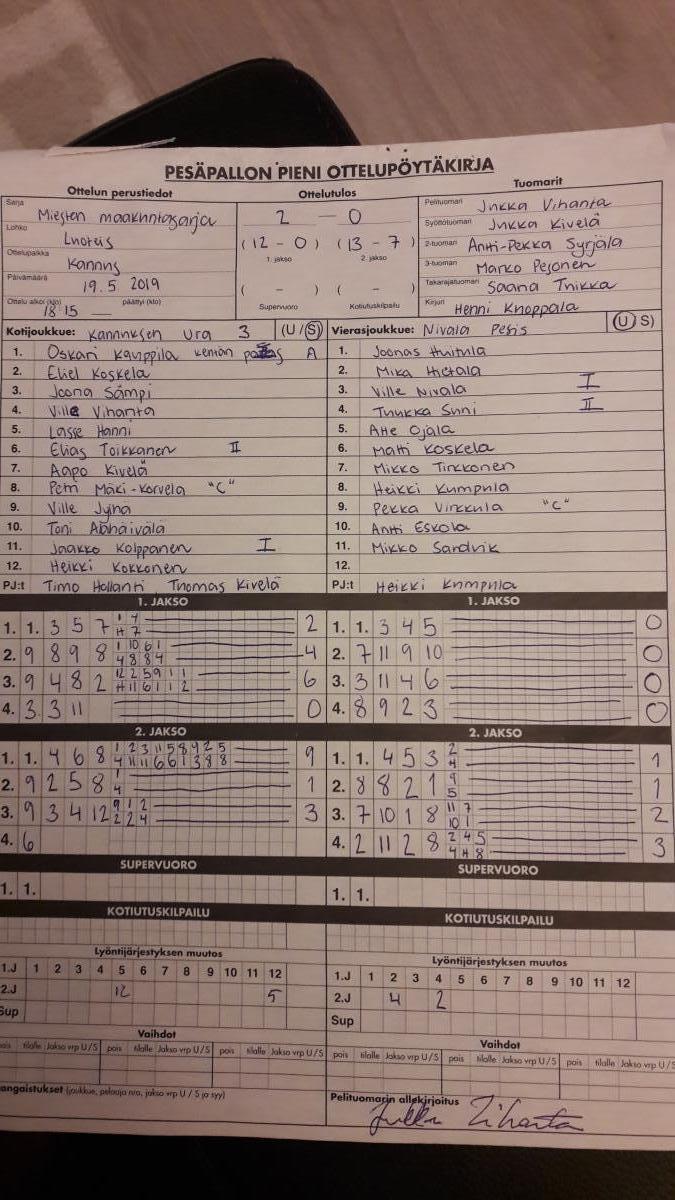 PESÄPALLON PIENI OTTELUPÖYTÄKIRJA
Ottelun perustiedot
Sarja Miesten maakuntasarja
Lohko Luoteis
Ottelupaikka Kannus
Päivämäärä 19.5 2019
Ottelu alkoi (klo) 18:15 päättyi (klo) —
Ottelutulos
2 — 0
(12 - 0) (13 - 7)
1. jakso 2. jakso
( - ) ( - )
Supervuoro Kotiutuskilpailu
Tuomarit
Pelituomari Jukka Vihanta
Syöttötuomari Jukka Kivelä
2-tuomari Antti-Pekka Syrjälä
3-tuomari Marko Pesonen
Takarajatuomari Saana Tuikka
Kirjuri Henni Knoppala
Kotijoukkue: Kannuksen Ura 3 (U / S)
1. Oskari Kauppila A
2. Eliel Koskela
3. Joona Sämpi
4. Ville Vihanta
5. Lasse Hanni
6. Elias Toikkanen II
7. Aapo Kivelä
8. Petri Mäki-Korvela "C"
9. Ville Jyna
10. Toni
11. Jaakko Kolppanen I
12. Heikki Kokkonen
PJ:t Timo Hollanti Tuomas Kivelä
Vierasjoukkue: Nivala Pesis (U / S)
1. Joonas Huitula
2. Mika Hietala
3. Ville Nivala I
4. Tuukka Suni II
5. Atte Ojala
6. Matti Koskela
7. Mikko Tirkkonen
8. Heikki Kumpula
9. Pekka Virkkula "C"
10. Antti Eskola
11. Mikko Sandvik
12.
PJ:t Heikki Kumpula
1. JAKSO
1. 1. 3 5 7 1 4 2
H 7
2. 9 8 9 8 1 10 6 1 4
4 8 8 4
3. 9 4 8 2 12 2 5 9 1 1 6
H 11 6 1 1 2
4. 3 3 11 0
1. JAKSO
1. 1. 3 4 5 0
2. 7 11 9 10 0
3. 3 11 4 6 0
4. 8 9 2 3 0
2. JAKSO
1. 1. 4 6 8 1 2 3 11 5 8 9 2 5 9
4 11 11 6 6 1 3 8 8
2. 9 2 5 8 1 1
4
3. 9 3 4 12 9 1 2 3
2 2 4
4. 6
2. JAKSO
1. 1. 4 5 3 2 1
4
2. 8 8 2 1 9 1
5
3. 7 10 1 8 11 7 2
10 1
4. 2 11 2 8 2 4 5 3
4 H 8
SUPERVUORO
1. 1.
SUPERVUORO
1. 1.
KOTIUTUSKILPAILU
KOTIUTUSKILPAILU
Lyöntijärjestyksen muutos
1.J 1 2 3 4 5 6 7 8 9 10 11 12
2.J 12 5
Sup
Lyöntijärjestyksen muutos
1.J 1 2 3 4 5 6 7 8 9 10 11 12
2.J 4 2
Sup
Vaihdot
pois tilalle Jakso vrp U / S pois tilalle Jakso vrp U / S pois tilalle Jakso vrp U / S
Vaihdot
pois tilalle Jakso vrp U / S pois tilalle Jakso vrp U / S pois tilalle Jakso vrp U / S
angaistukset (joukkue, pelaaja nro, jakso vrp U / S ja syy)
Pelituomarin allekirjoitus
Jukka Vihanta